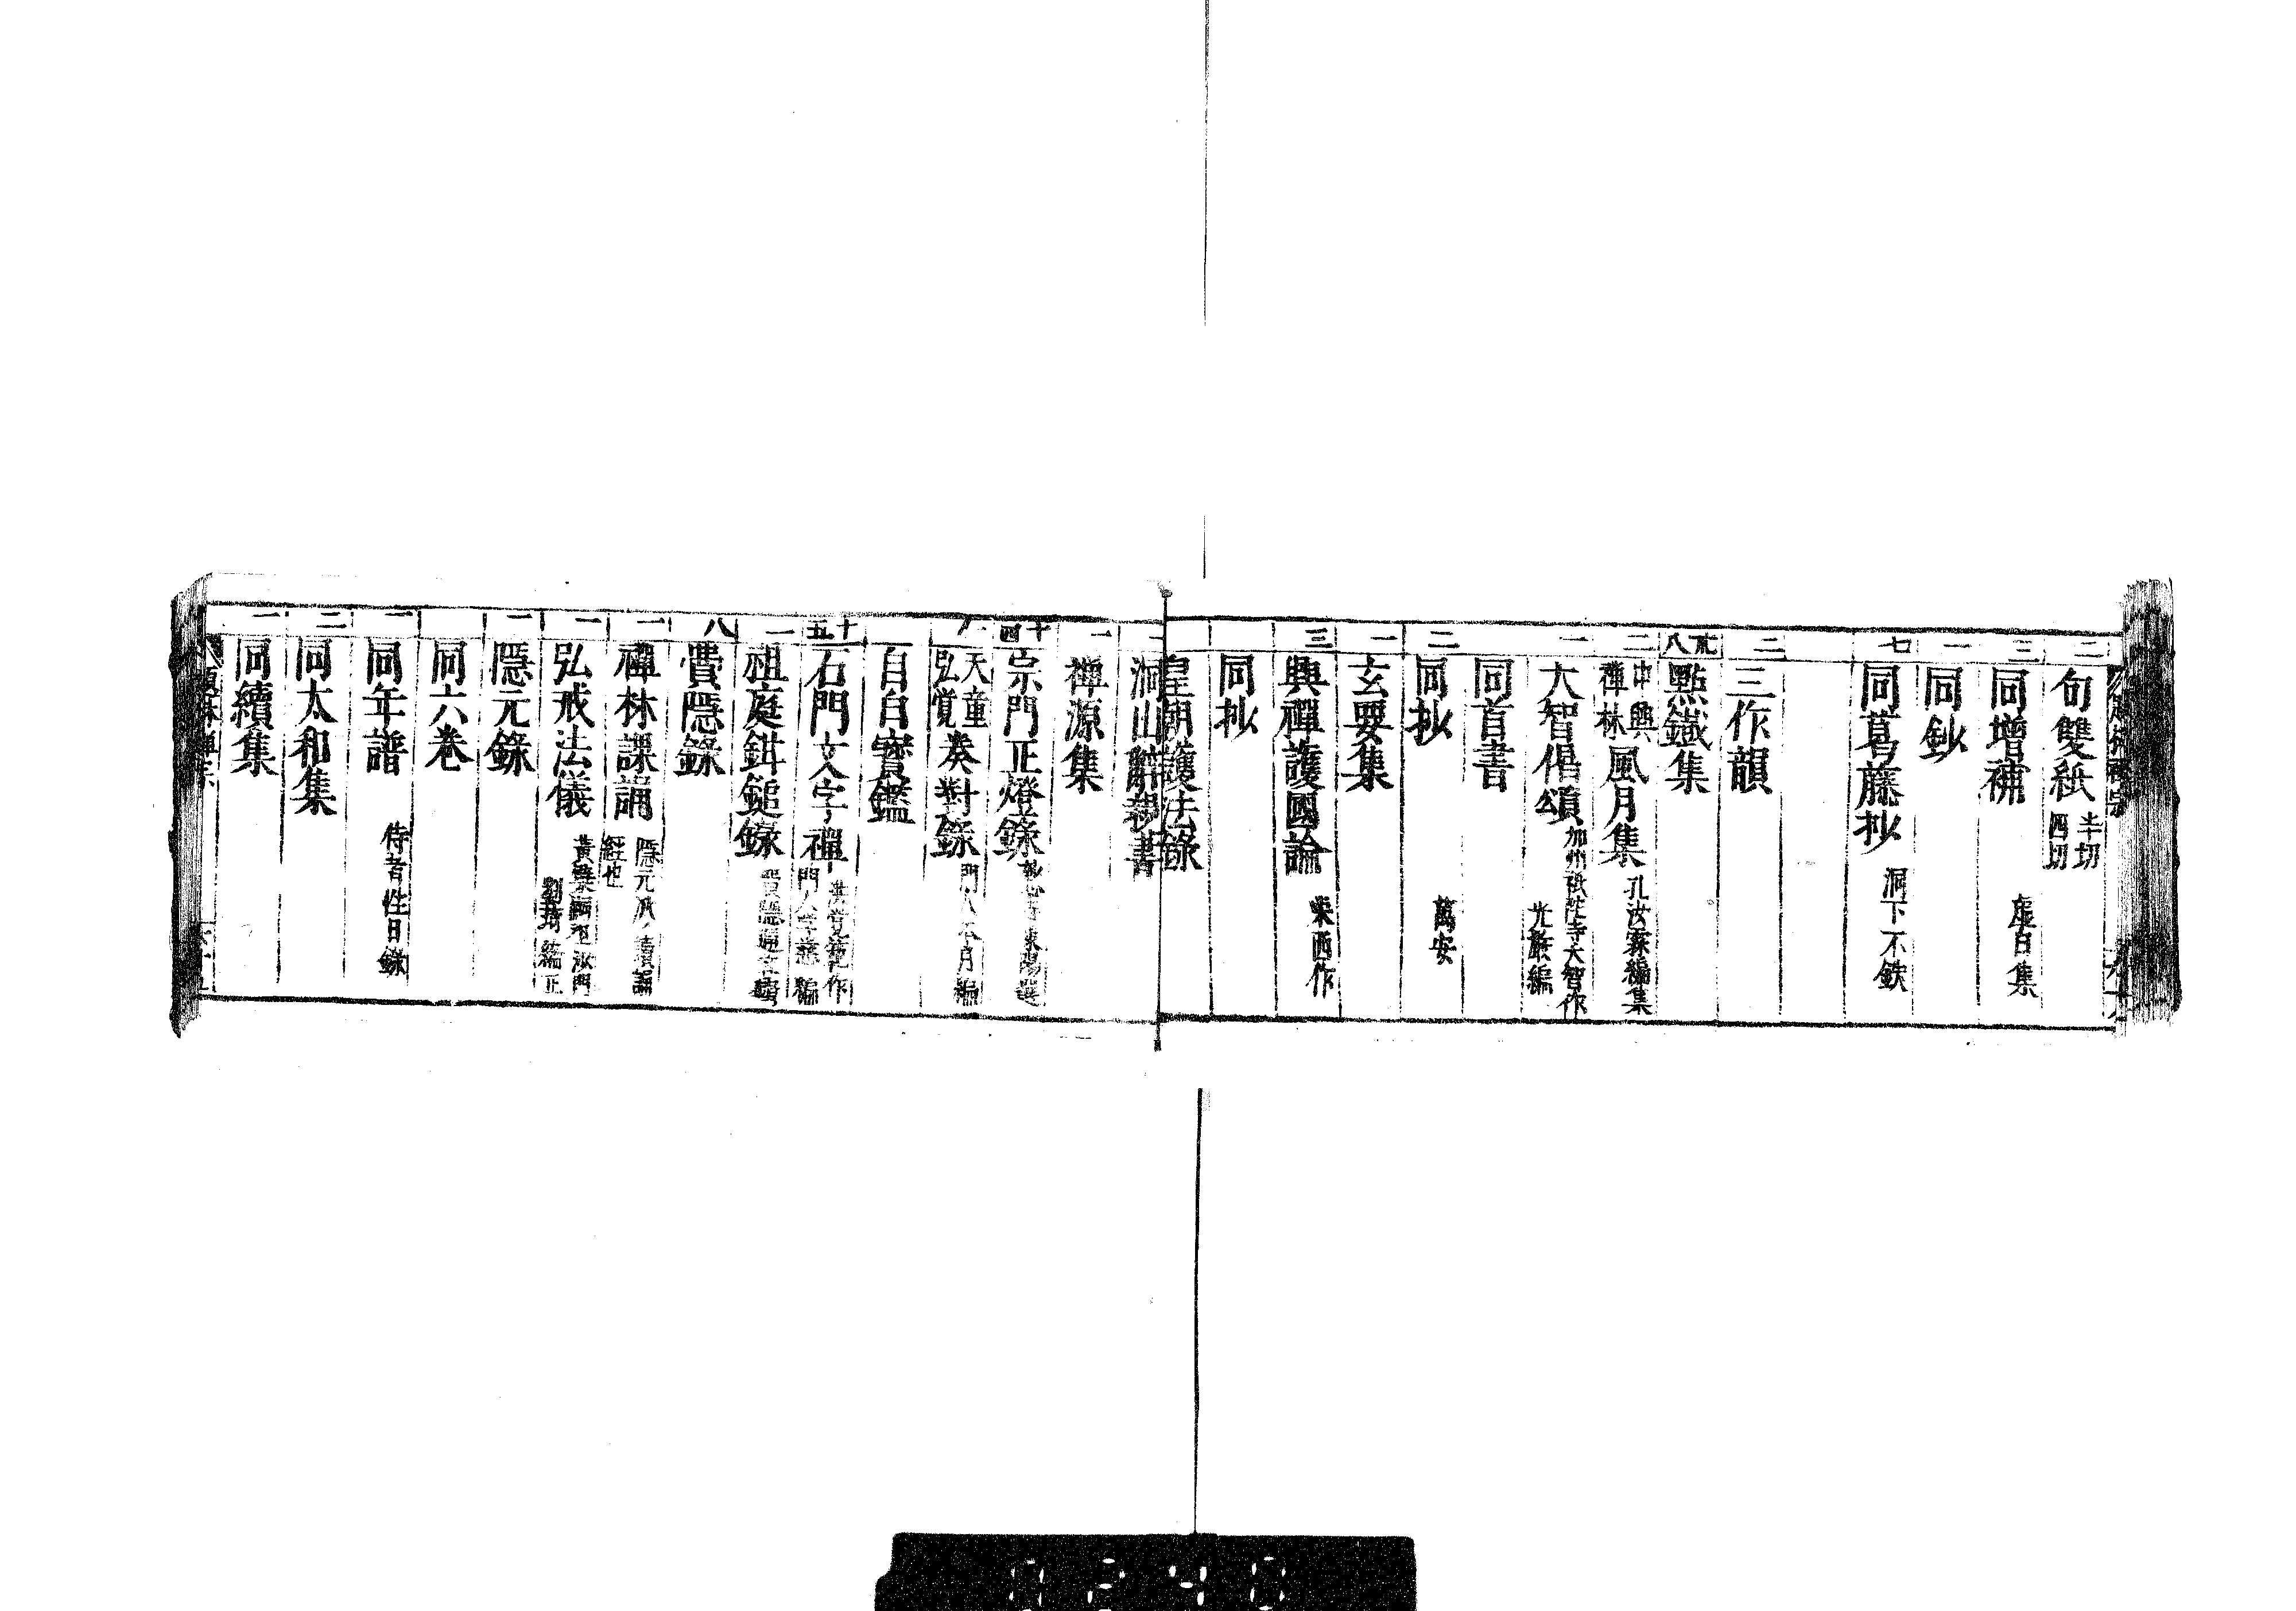 二 句雙紙 半切 四切
三 同増補 虚白集
一 同鈔
七 同葛藤抄 洞下不鉄
二 三作韻
八 點鐵集
二 中興禪林風月集 孔汝霖編集
一 大智偈頌 加州祇陀寺大智作 光嚴編
同首書
二 同抄 萬安
一 玄要集
三 興禪護國論 榮西作
同抄
皇朝護法錄
洞山辭親書
一 禪源集
十四 宗門正燈錄
天童弘覺奏對錄
自自寶鑑
十五 石門文字禪 洪覺範作 門人 編
一 祖庭鉗鎚錄
八 費隱錄
一 禪林課誦 隱元派ノ讀誦經也
一 弘戒法儀
一 隱元錄
同六巻
一 同年譜 侍者性日錄
二 同太和集
一 同續集